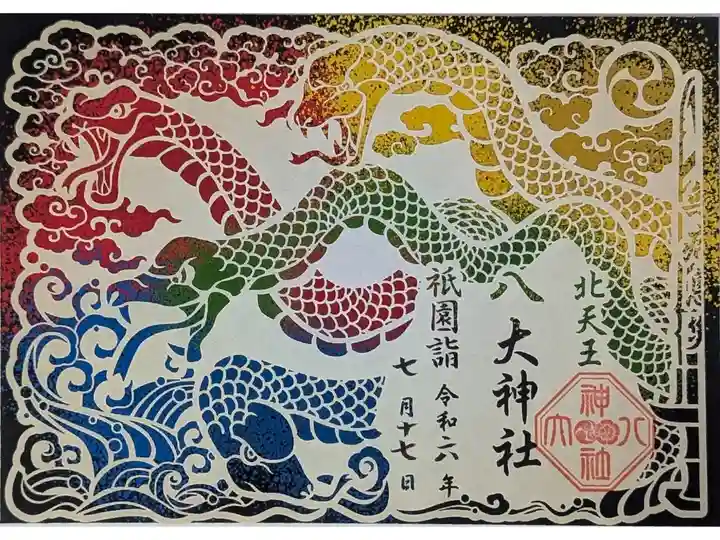 北天王
八大神社
祇園詣
令和六年
七月十七日
八大
神社